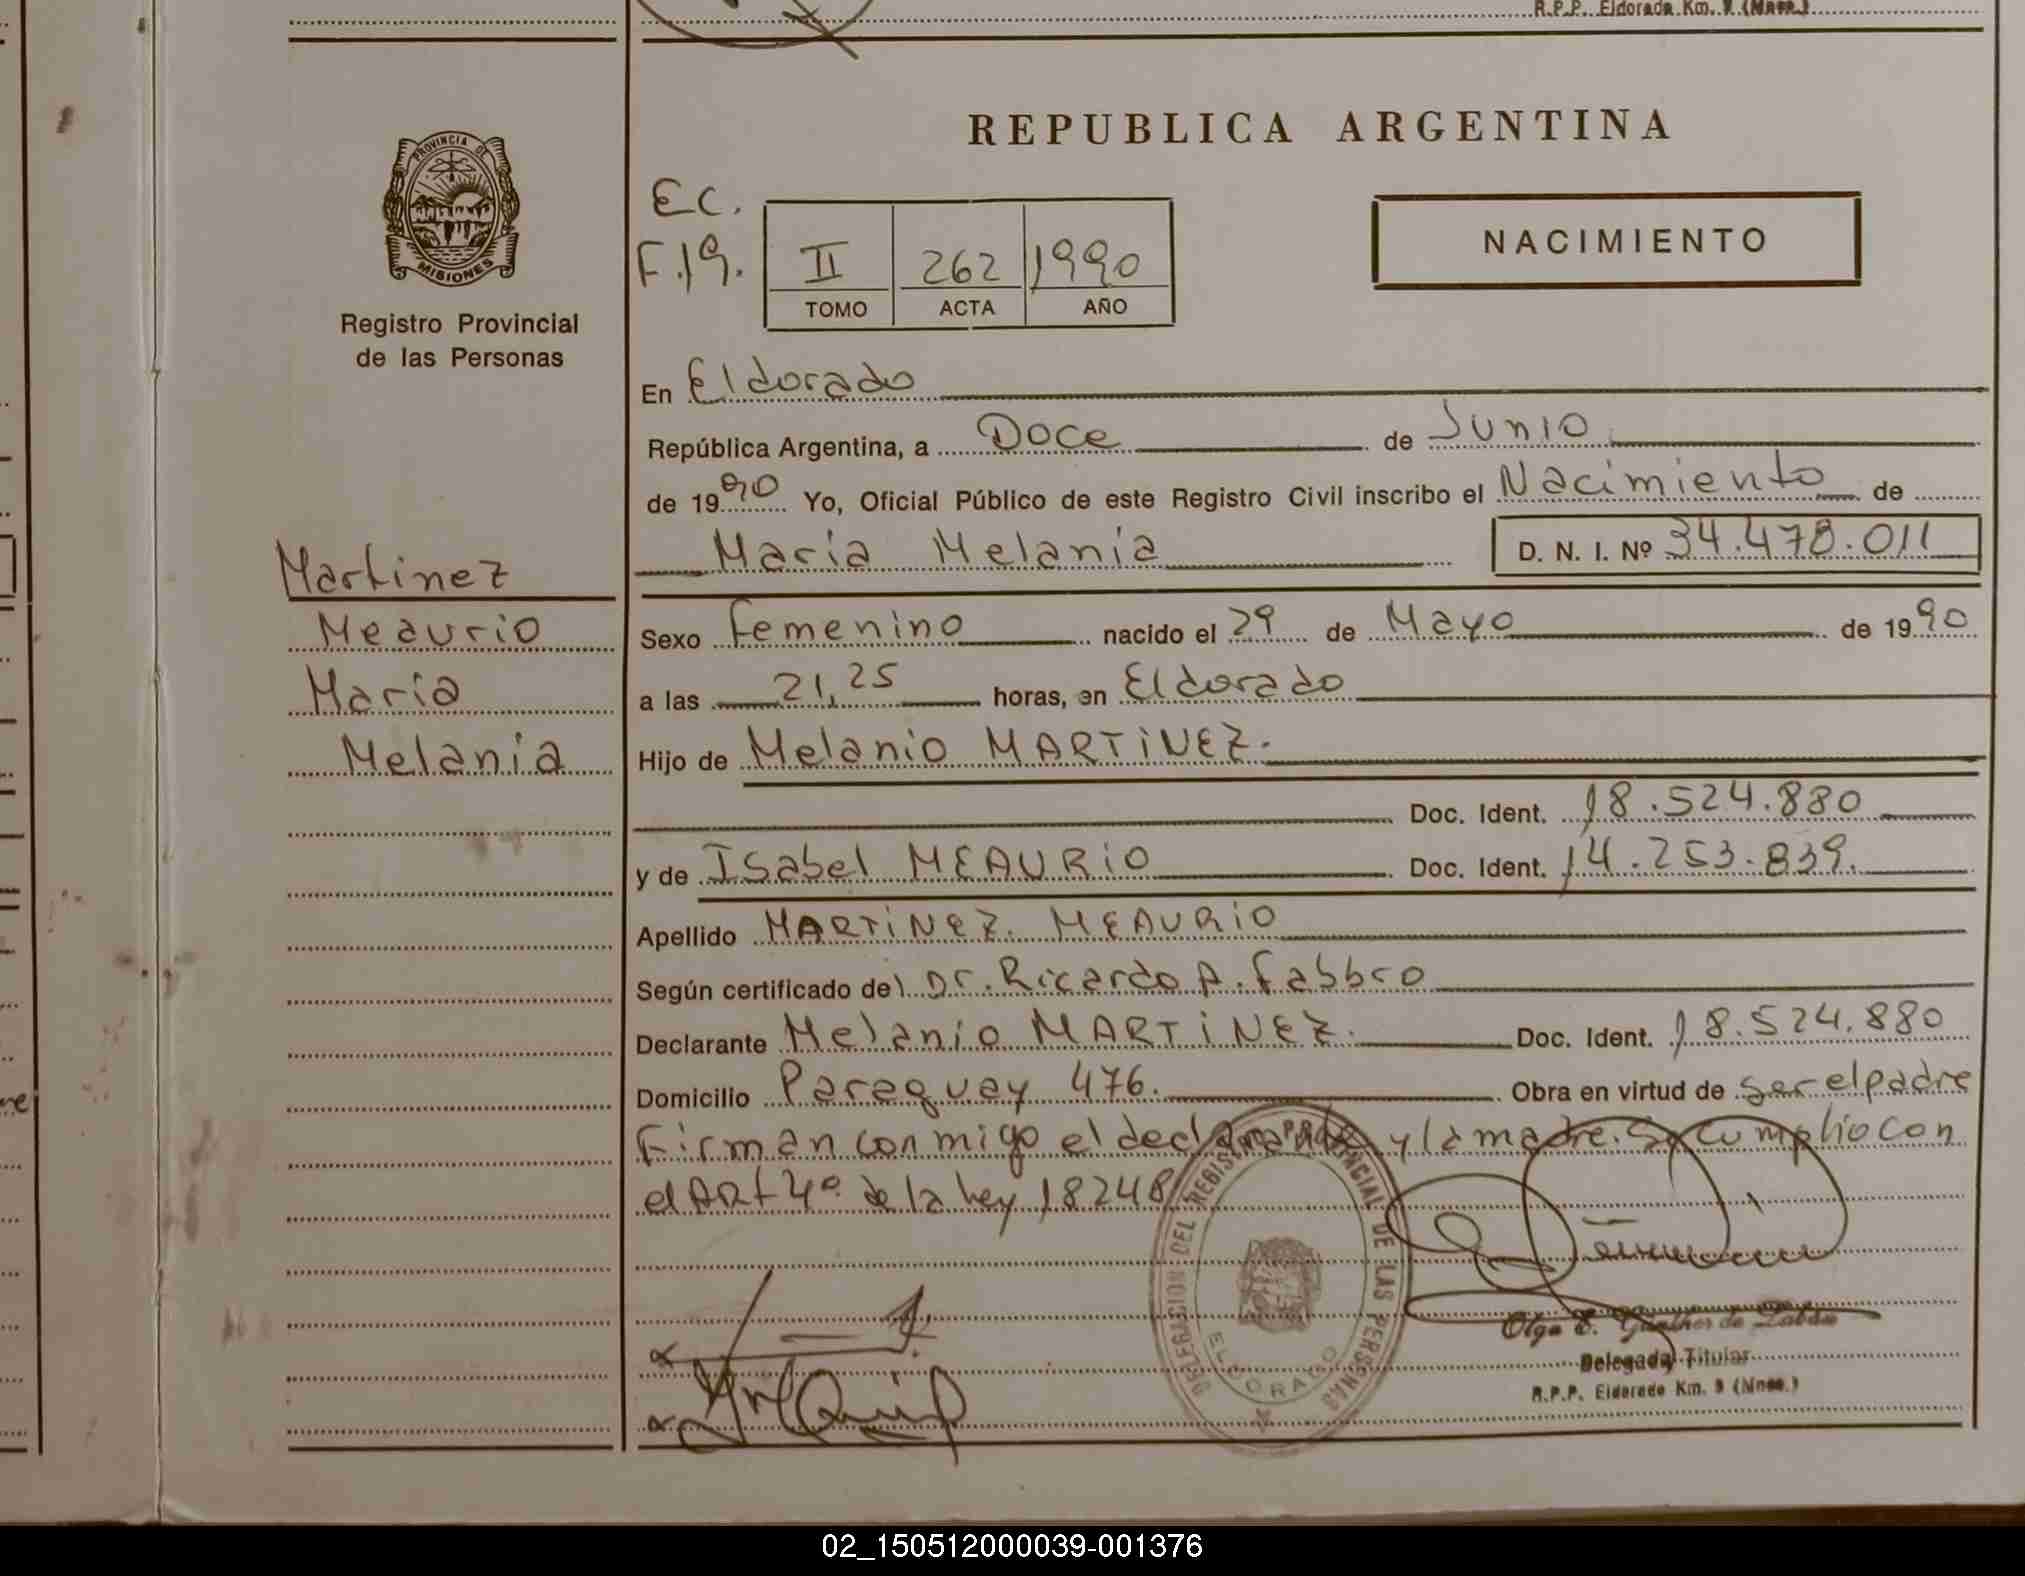 R.P.P. Eldorado Km. 9 (Mnes.)
REPUBLICA ARGENTINA
PROVINCIA DE
MISIONES
Registro Provincial
de las Personas
EC.
F.19.
II 262 1990
TOMO ACTA AÑO
NACIMIENTO
En Eldorado
República Argentina, a Doce de Junio
de 1990 Yo, Oficial Público de este Registro Civil inscribo el Nacimiento de
Maria Melania D. N. I. Nº 34.478.011
Martinez
Meaurio
Maria
Melania
Sexo Femenino nacido el 29 de Mayo de 1990
a las 21,25 horas, en Eldorado
Hijo de Melanio MARTINEZ.
Doc. Ident. 18.524.880
y de Isabel MEAURIO Doc. Ident. 14.253.839.
Apellido MARTINEZ. MEAURIO
Según certificado del Dr. Ricardo A. Fabbro
Declarante Melanio MARTINEZ. Doc. Ident. 18.524.880
Domicilio Paraguay 476. Obra en virtud de ser el padre
Firman conmigo el declarante y la madre. Se cumplio con
el ARt 4º de la ley 18248
DELEGACION DEL REGISTRO PROVINCIAL DE LAS PERSONAS
ELDORADO
Olga E. Günther de
Delegada Titular
R.P.P. Eldorado Km. 9 (Mnes.)
02_150512000039-001376